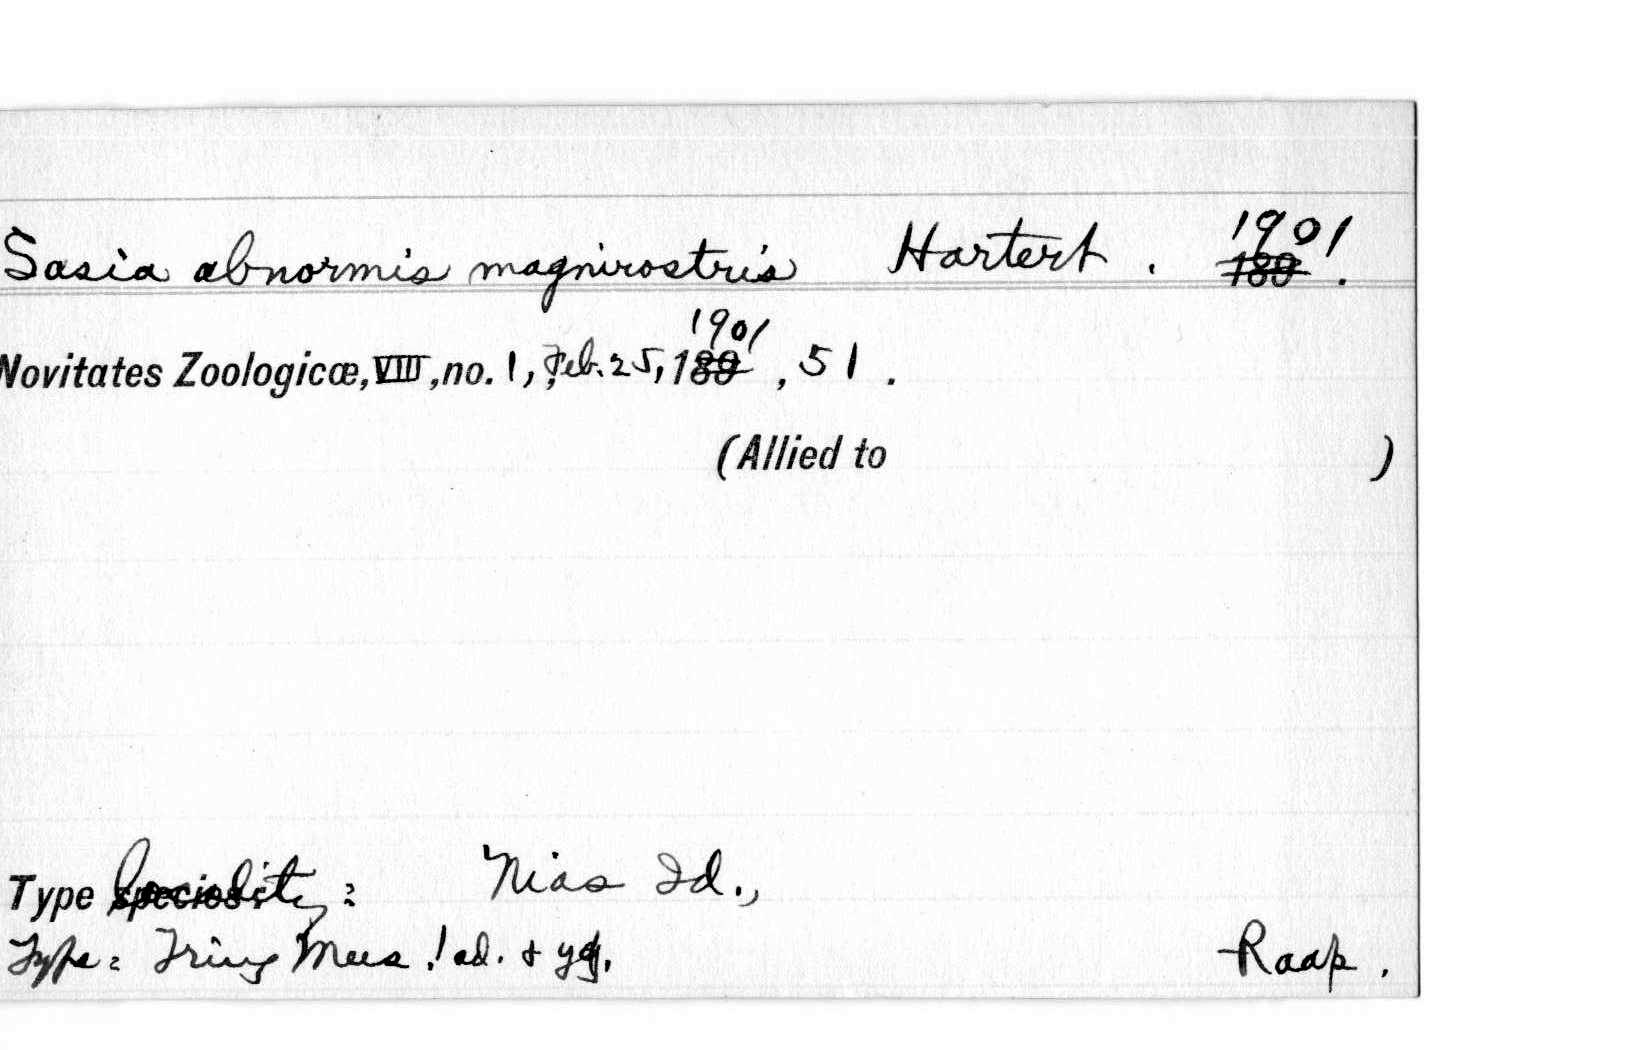 Sasia abnormis magnirostris Hartert. 1901.
Novitates Zoologicæ, VIII, no. 1, Feb. 25, 1901, 51.
(Allied to )
Type locality: Nias Id.,
Type: Tring Mus. ! ad. + yg. Raap.